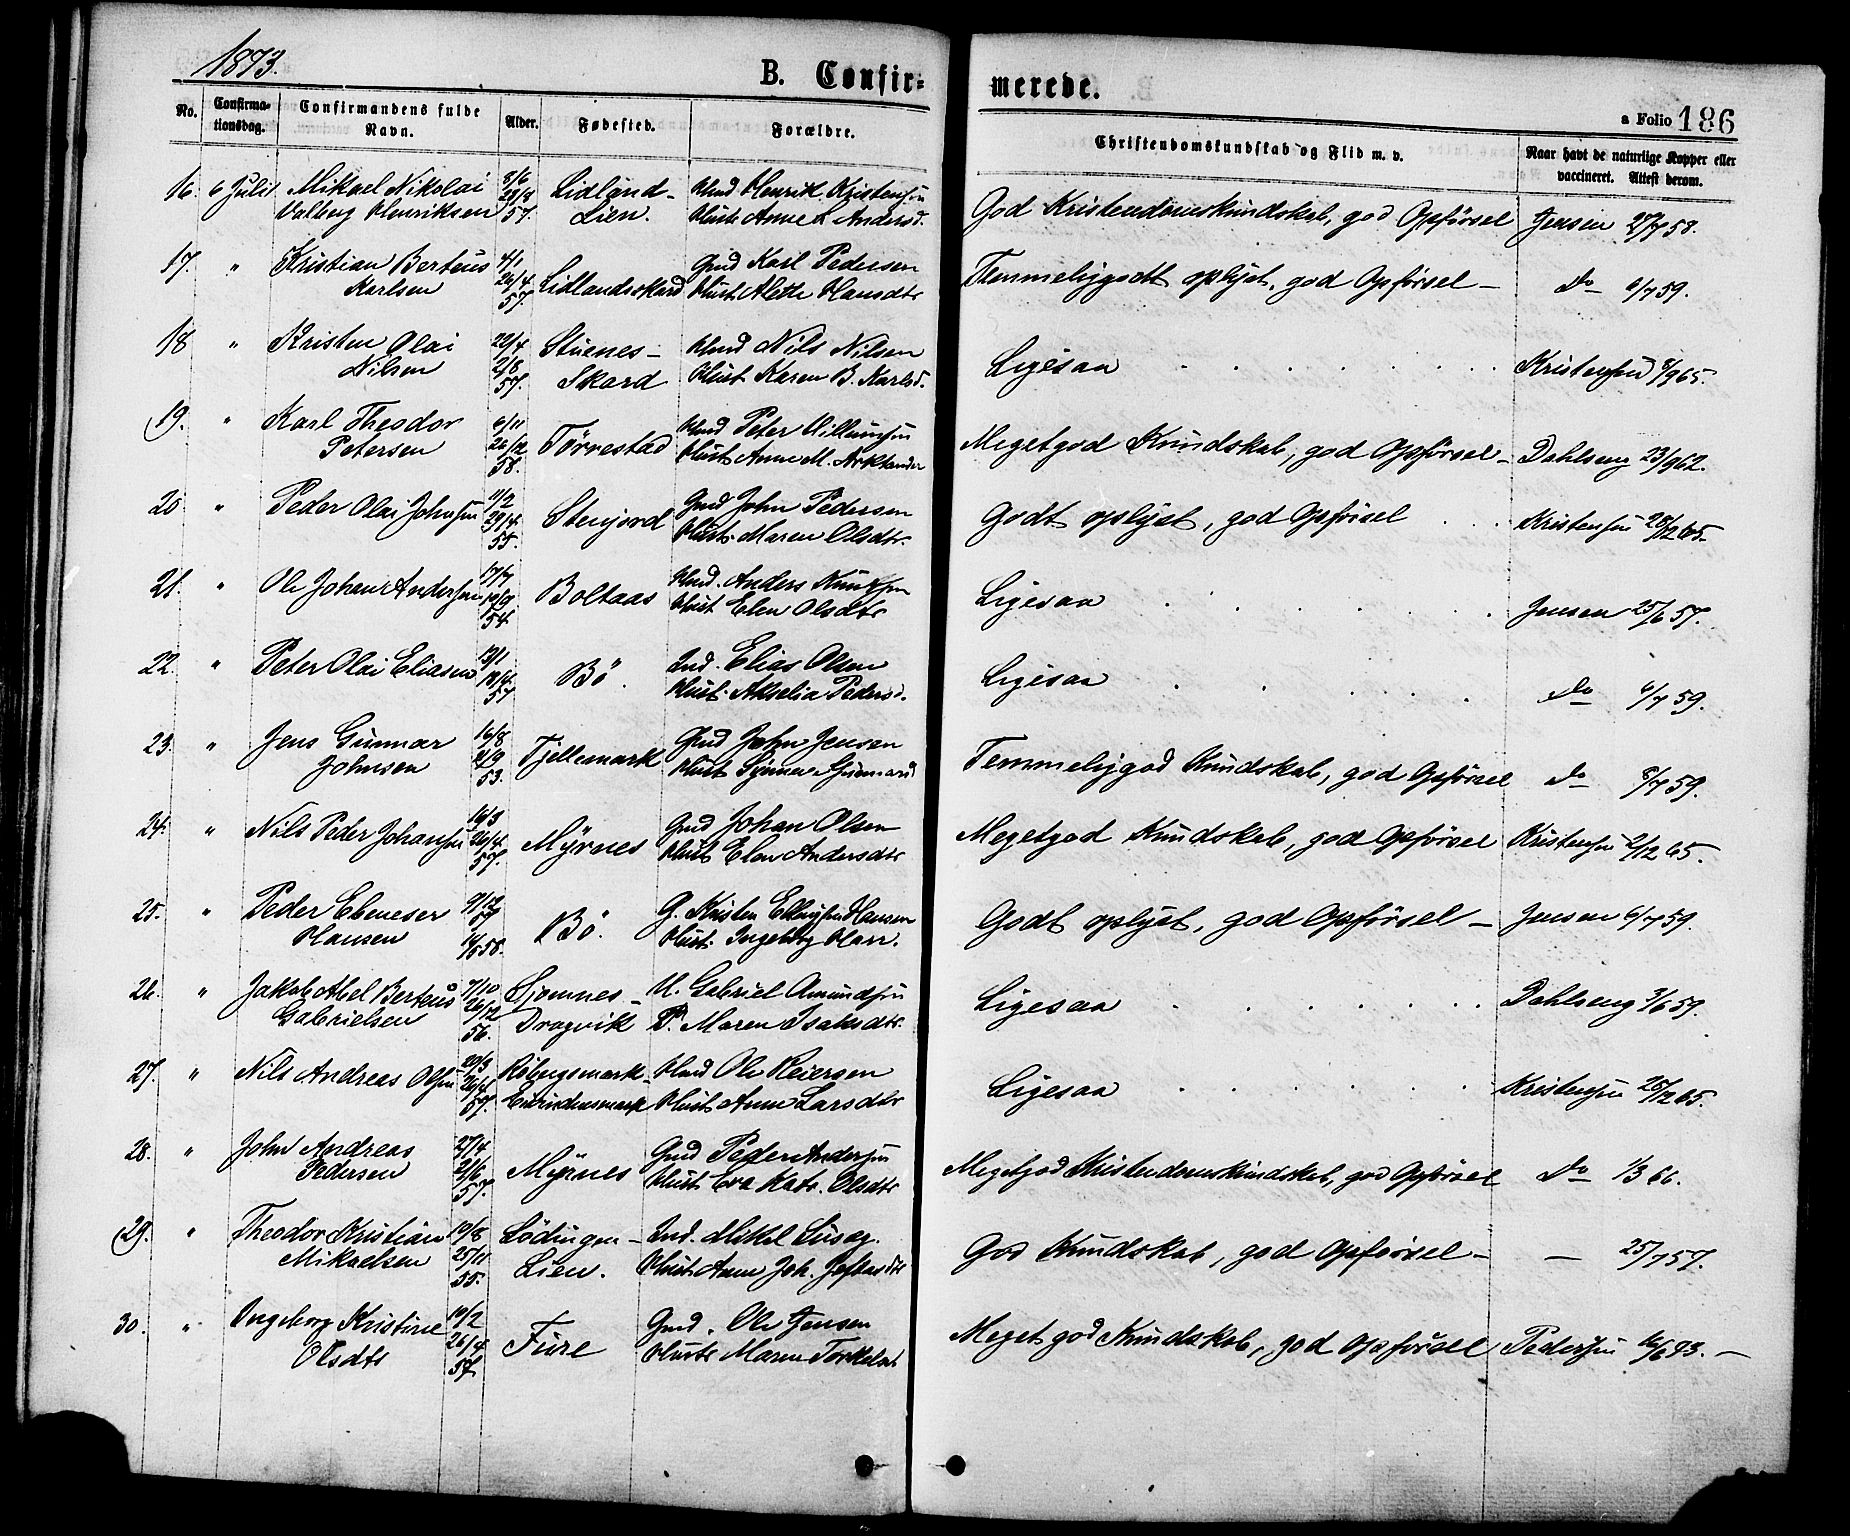 1873.
B. Confirmerede.
a Folio 186
No. Confirmationsdag. Confirmandens fulde Navn. Alder. Fødested. Forældre. Christendomskundskab og Flid m. v. Naar havt de naturlige Kopper eller vaccineret. Attest derom.
16. 6 Juli Mikael Nikolai 8/6 Lidland- Hmd Henrik Kristensen God Kristendomskundskab, god Opførsel Jensen 27/7 58.
Valberg Henriksen 57. Lien. Hust. Anne L. Andersd.
17. " Kristian Berteus 4/1 Gmd Karl Pedersen Temmelig godt oplyst, god Opførsel – do 6/7 59.
Karlsen 26/4 57. Lidlandsskard Hust. Alette Hansdtr
18 " Kristen Olai 22/4 Stuenes- Hmd Nils Nilsen Ligesaa Kristensen 8/9 65.
Nilsen 2/8 57. Skard Hust Karen B. Karlsd.
19. " Karl Theodor 6/11 Hmd Peter Meget god Kundskab, god Opførsel – Dahlseng 23/9 62.
Petersen 26/12 58. Tørrestad Hust. Anne M. Arktander
20 " Peder Olai Johnsen 11/2 29/4 55. Stenjord Gmd John Pedersen Godt oplyst, god Opførsel Kristensen 28/12 65.
Hust. Maren Olsdtr.
21. " Ole Johan Andersen 17/7 54 Boltaas Hmd. Anders Knutsen Ligesaa Jensen 25/6 57.
Hust Elen Olsdtr
22. " Peter Olai Eliasen 13/1 57 Bö. Ind. Elias Olsen Ligesaa do 6/7 59.
Hust. Akselia Pedersd.
23. " Jens Gunnar 16/8 Tjellemark Gmd John Jensen Temmelig god Kundskab, god Opførsel do 8/7 59.
Johnsen 4/9 53. Hust Gunnarsd
24. " Nils Peder Johansen 16/3 26/4 57. Myrnes Gmd Johan Olsen Meget god Kundskab, god Opførsel Kristensen 2/12 65.
Hust Elen Andersdtr
25. " Peder Ebeneser 9/12 57 Bö. G. Kristen Hansen Godt oplyst, god Opførsel – Jensen 6/7 59.
Hansen 58. Hust. Ingeborg Hans.
26. " Jakob Abel Berteus 7/10 Sjomnes- U. Gabriel Amundsen Ligesaa Dahlseng 3/6 59.
Gabrielsen 26/12 56. Dragvik P. Maren Isaksdtr.
27. " Nils Andreas Olsen 20/3 Hmd Ole Reiersen Ligesaa Kristensen 28/12 65.
26/4 57. Hust Anne Larsdtr
28. " John Andreas 27/4 Myrnes Gmd Peder Andersen Meget god Kristendomskundskab, god Opførsel do 1/3 66.
Pedersen 21/6 57. Hust. Eva Katr. Olsdtr
29. " Theodor Kristian 19/8 Lödingen- Ind. Mikel God Kundskab, god Opførsel – – 25/7 57.
Mikaelsen 25/11 55. Lien. Hust. Anne Joh. Jeftasdtr
30. " Ingeborg Kristine 10/2 Fure Gmd. Ole Jensen Meget god Kundskab, god Opførsel Pedersen 16/6 73. –
Olsdtr 26/4 57. Hust. Maren Torkelsd